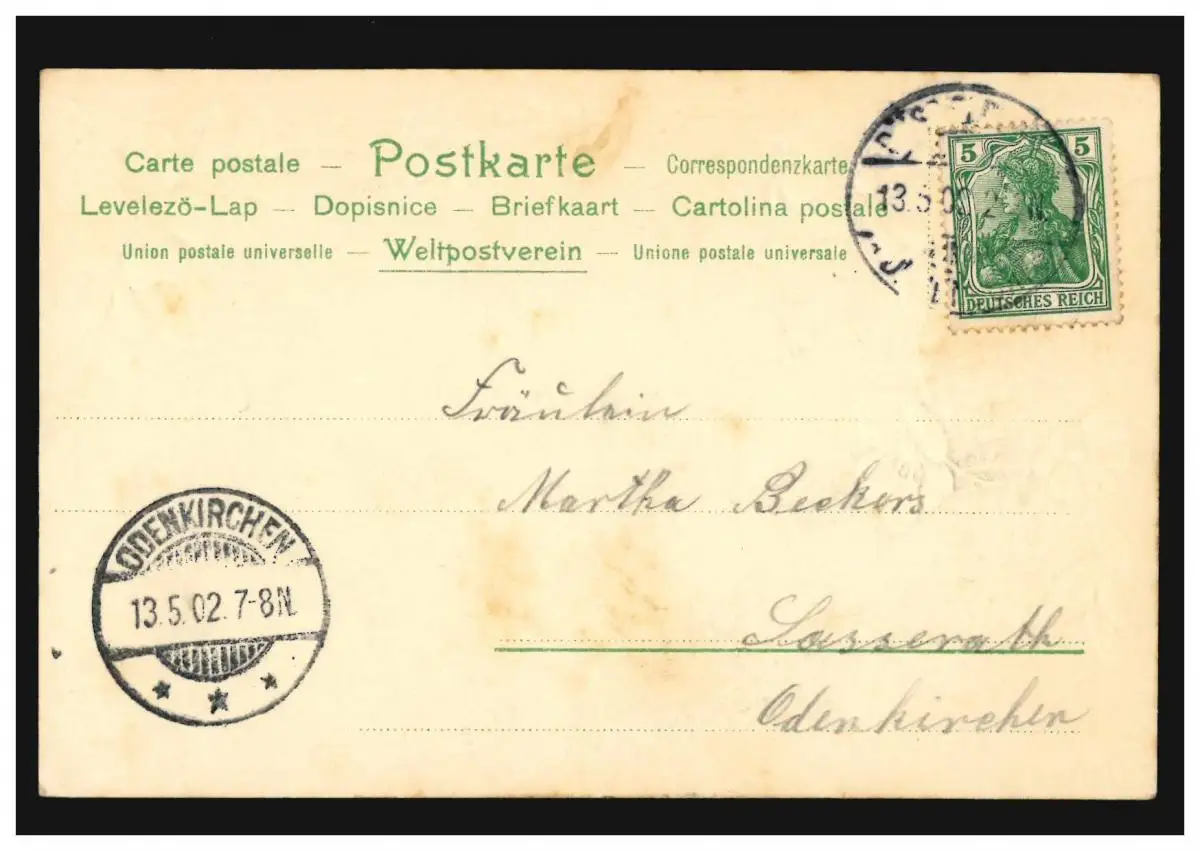 Carte postale — Postkarte — Correspondenzkarte
Levelező-Lap — Dopisnice — Briefkaart — Cartolina postale
Union postale universelle — Weltpostverein — Unione postale universale
13.5.02
5 5
DEUTSCHES REICH
Fräulein
Martha Beckers
Sasserath
Odenkirchen
ODENKIRCHEN
13.5.02.7-8N.